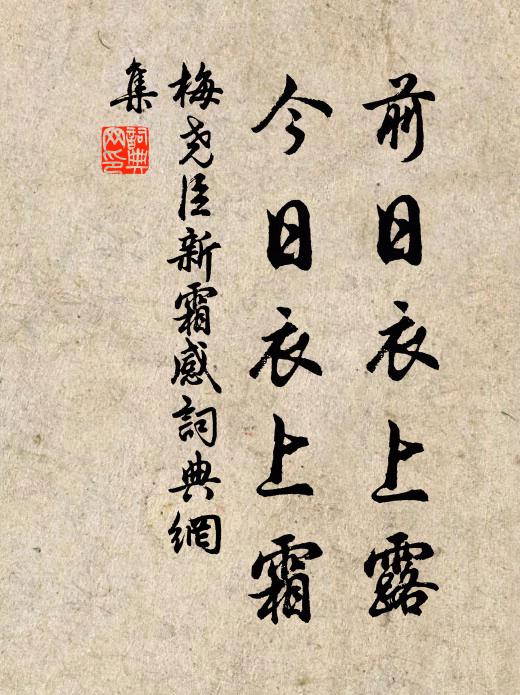 前日衣上露
今日衣上霜
梅尧臣新霜感詞典網
集
詞典
网印